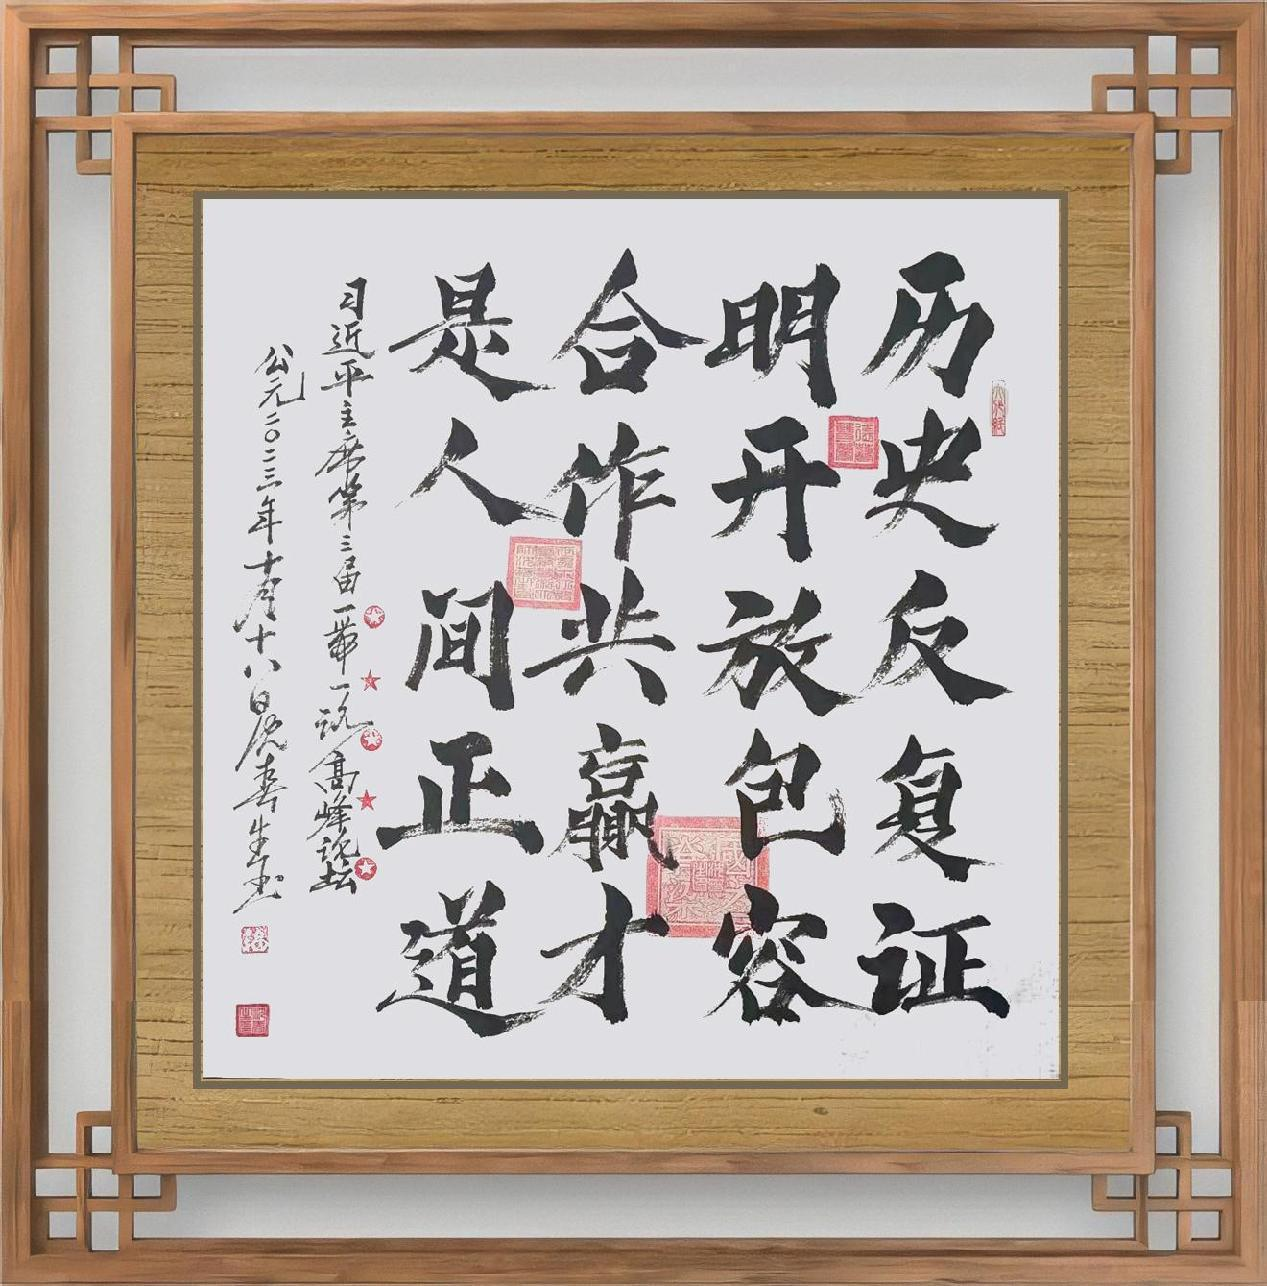 历史反复证
明开放包容
合作共赢才
是人间正道
习近平主席第三届一带一路高峰论坛
公元二〇二三年十月十八日虎春生书